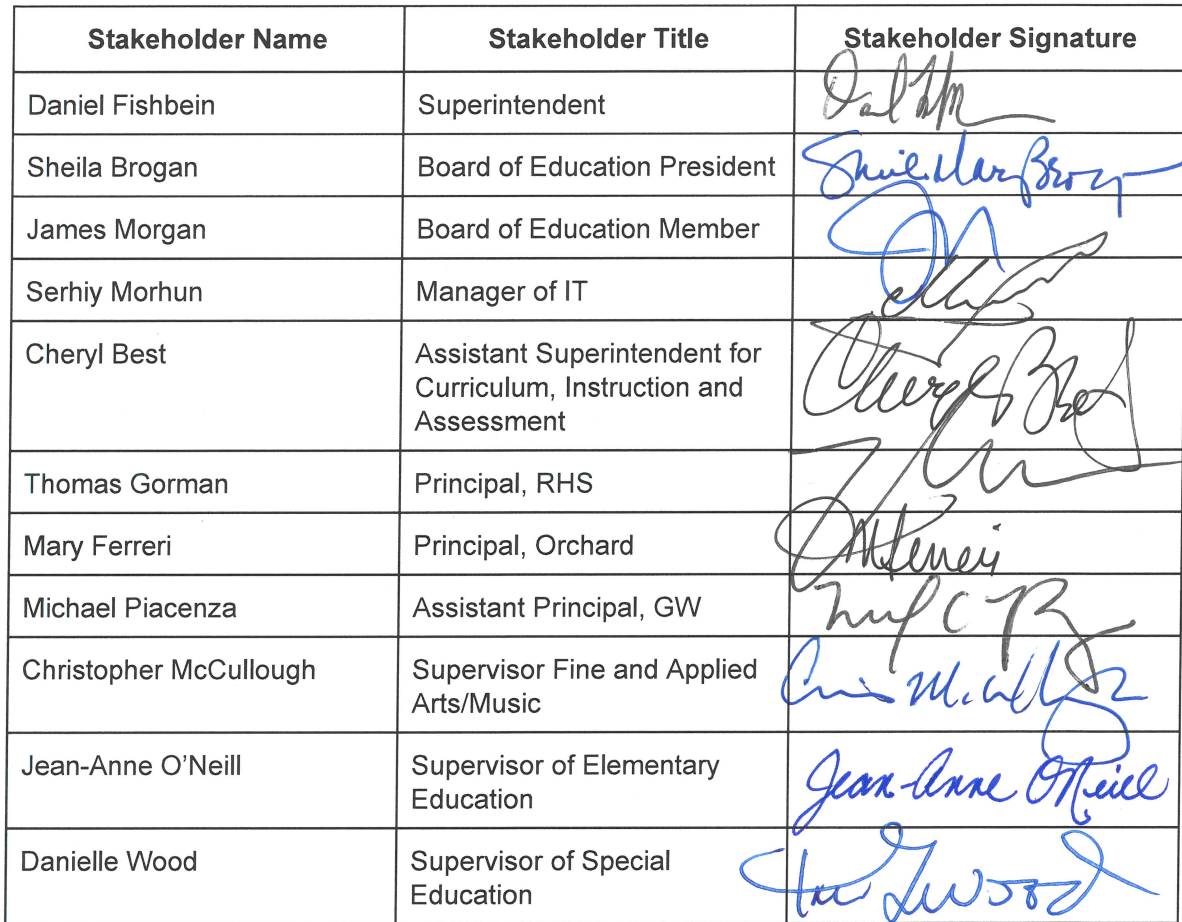 Stakeholder Name Stakeholder Title Stakeholder Signature
Daniel Fishbein Superintendent
Sheila Brogan Board of Education President
James Morgan Board of Education Member
Serhiy Morhun Manager of IT
Cheryl Best Assistant Superintendent for Cheryl Best
Curriculum, Instruction and
Assessment
Thomas Gorman Principal, RHS
Mary Ferreri Principal, Orchard
Michael Piacenza Assistant Principal, GW
Christopher McCullough Supervisor Fine and Applied
Arts/Music
Jean-Anne O'Neill Supervisor of Elementary Jean-Anne O'Neill
Education
Danielle Wood Supervisor of Special
Education